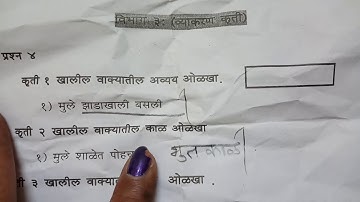 विभाग ३: (व्याकरण कृती)
प्रश्न ४
कृती १ खालील वाक्यातील अव्यय ओळखा.
१) मुले झाडाखाली बसली
कृती २ खालील वाक्यातील काळ ओळखा
१) मुले शाळेत भुतकाळ
ती ३ खालील ओळखा .